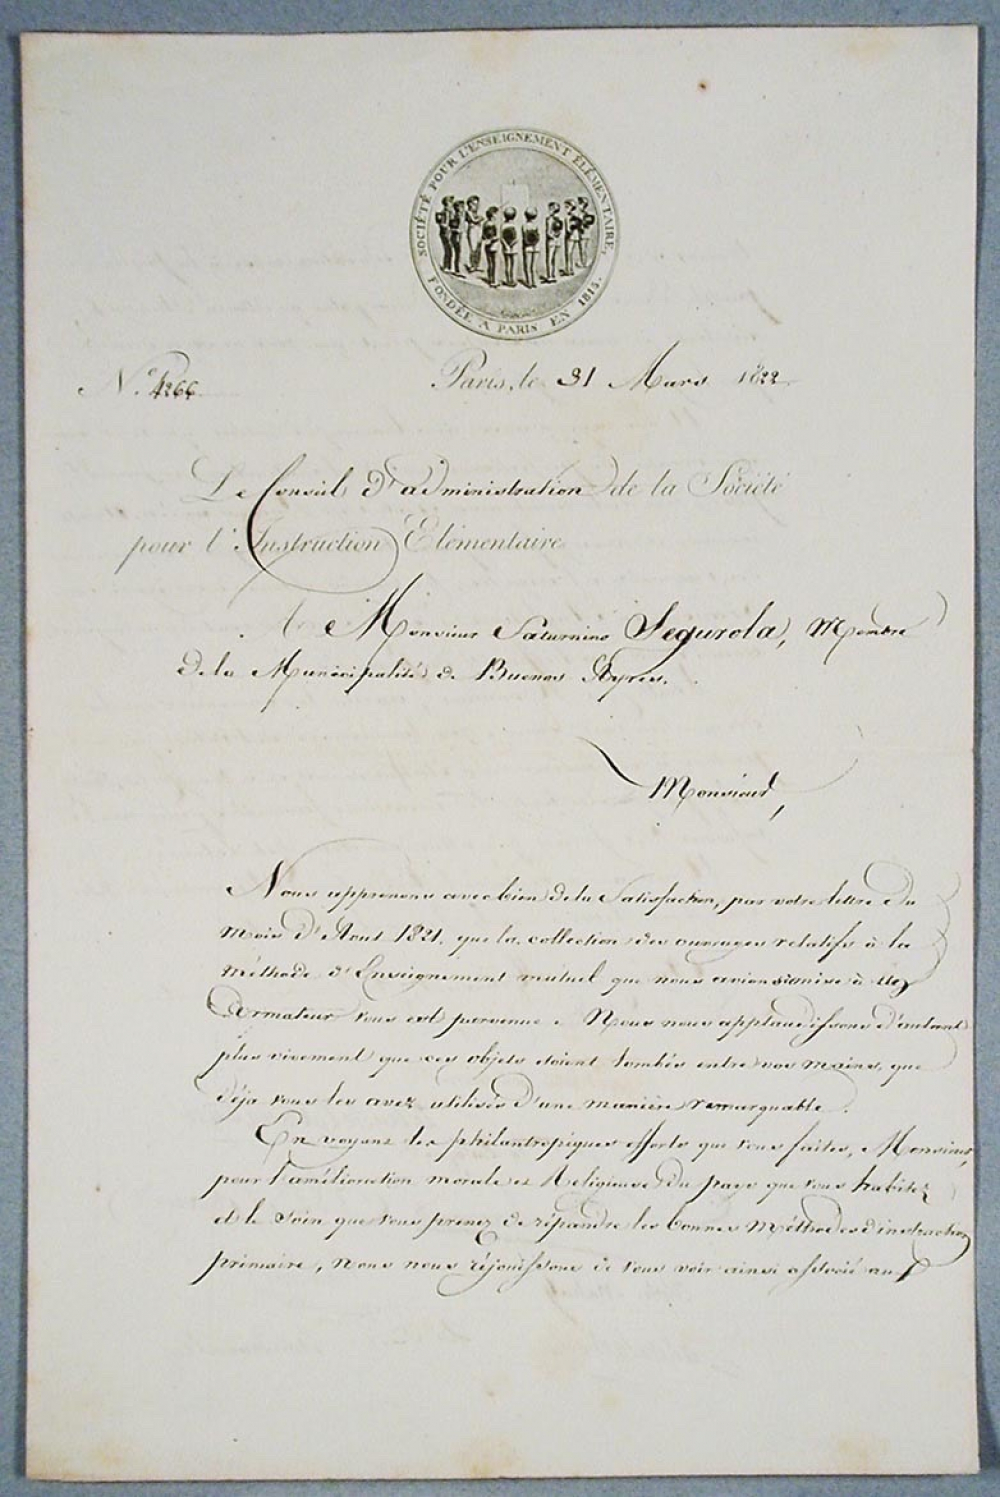 SOCIÉTÉ POUR L'ENSEIGNEMENT ÉLÉMENTAIRE,
FONDÉE A PARIS EN 1815.
N.º 4266.
Paris, le 31 Mars 1822
Le Conseil d'administration de la Société
pour l'Instruction Elémentaire
A Monsieur Saturnino Segurola, Membre
De la Municipalité de Buenos Ayres.
Monsieur,
Nous apprenons avec bien de la Satisfaction, par votre lettre du
mois d'Aout 1821, que la collection des ouvrages relatifs à la
méthode d'Enseignement mutuel que nous avions remise à
vous est parvenue. Nous nous applaudissons d'autant
plus vivement que ces objets soient tombés entre vos mains, que
déja vous les avez utilisés d'une manière remarquable.
En voyant les philantropiques efforts que vous faites, Monsieur,
pour l'amélioration morale et Religieuse du pays que vous habitez
et le soin que vous prenez de répandre les bonnes méthodes d'instruction
primaire, nous nous réjouissons de vous voir ainsi associé aux